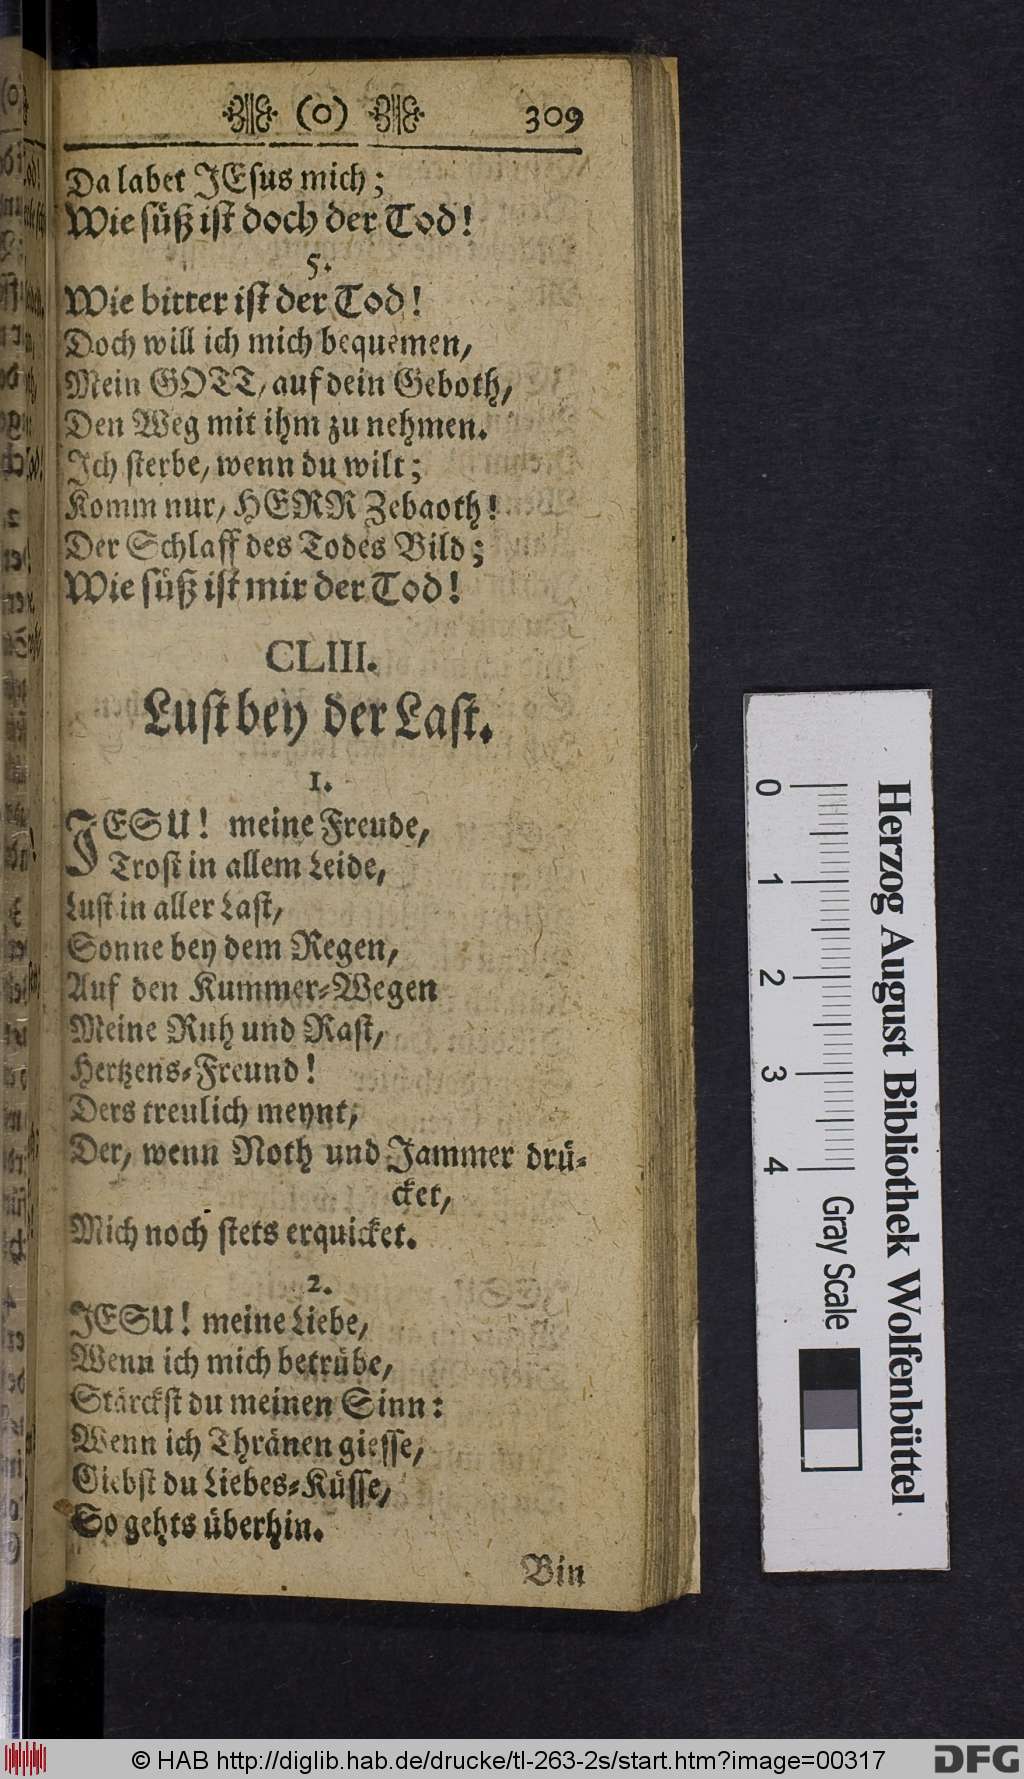 (o) 309
Da labet JEsus mich;
Wie süß ist doch der Tod!
5.
Wie bitter ist der Tod!
Doch will ich mich bequemen,
Mein GOTT, auf dein Geboth,
Den Weg mit ihm zu nehmen.
Ich sterbe, wenn du wilt;
Komm nur, HERR Zebaoth!
Der Schlaff des Todes Bild;
Wie süß ist mir der Tod!
CLIII.
Lust bey der Last.
1.
JESU! meine Freude,
Trost in allem Leide,
Lust in aller Last,
Sonne bey dem Regen,
Auf den Kummer-Wegen
Meine Ruh und Rast,
Hertzens-Freund!
Ders treulich meynt,
Der, wenn Noth und Jammer drü-
cket,
Mich noch stets erquicket.
2.
JESU! meine Liebe,
Wenn ich mich betrübe,
Stärckst du meinen Sinn:
Wenn ich Thränen giesse,
Giebst du Liebes-Küsse,
So gehts überhin.
Bin
Herzog August Bibliothek Wolfenbüttel
0 1 2 3 4 Gray Scale
© HAB http://diglib.hab.de/drucke/tl-263-2s/start.htm?image=00317
DFG